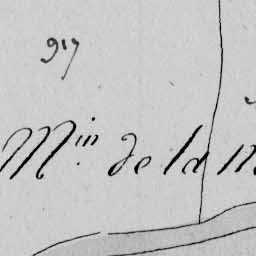 917
Min de la